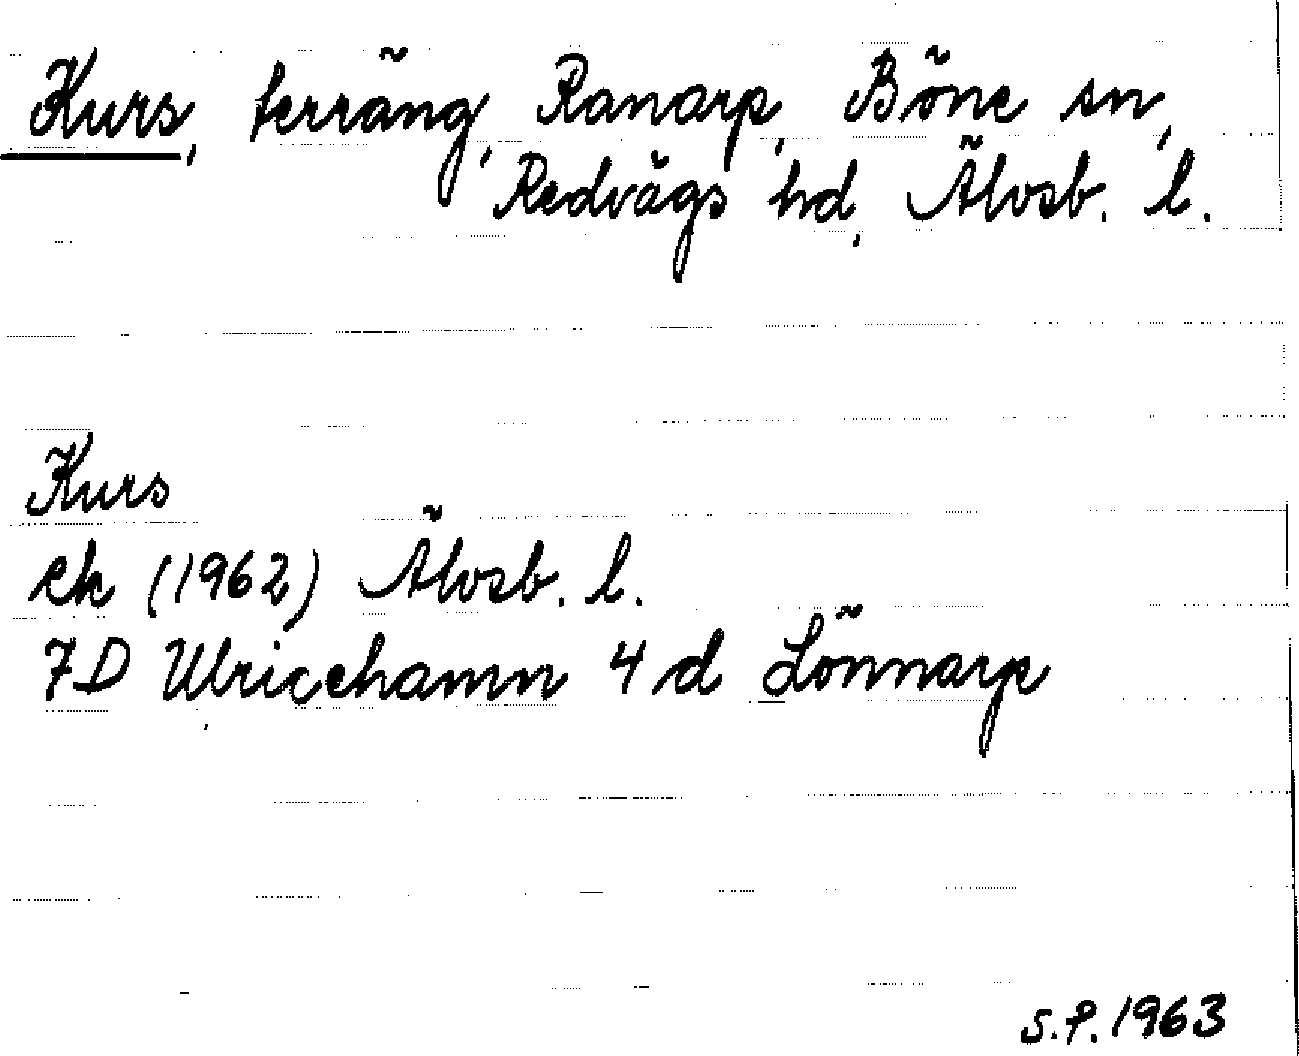 Kurs, terräng, Ranarp, Böne sn,
Redvägs hd, Älvsb. l.
Kurs
ek (1962) Älvsb. l.
7D Ulricehamn 4 d Lönnarp
S.P. 1963